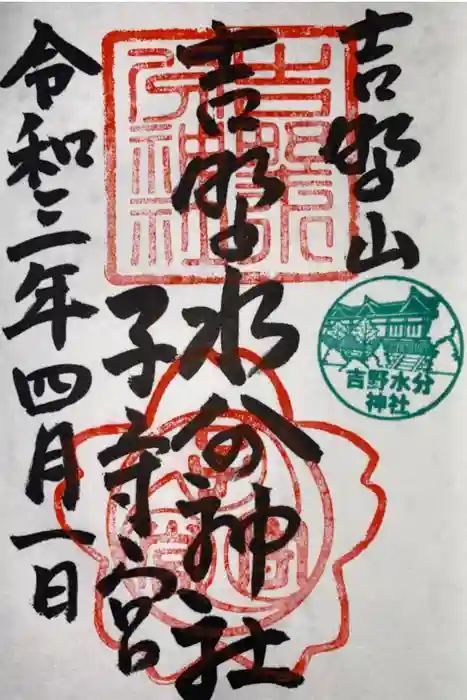 吉野山
吉野水分神社
子守宮
令和三年四月一日
吉野水分神社
吉野水分神社